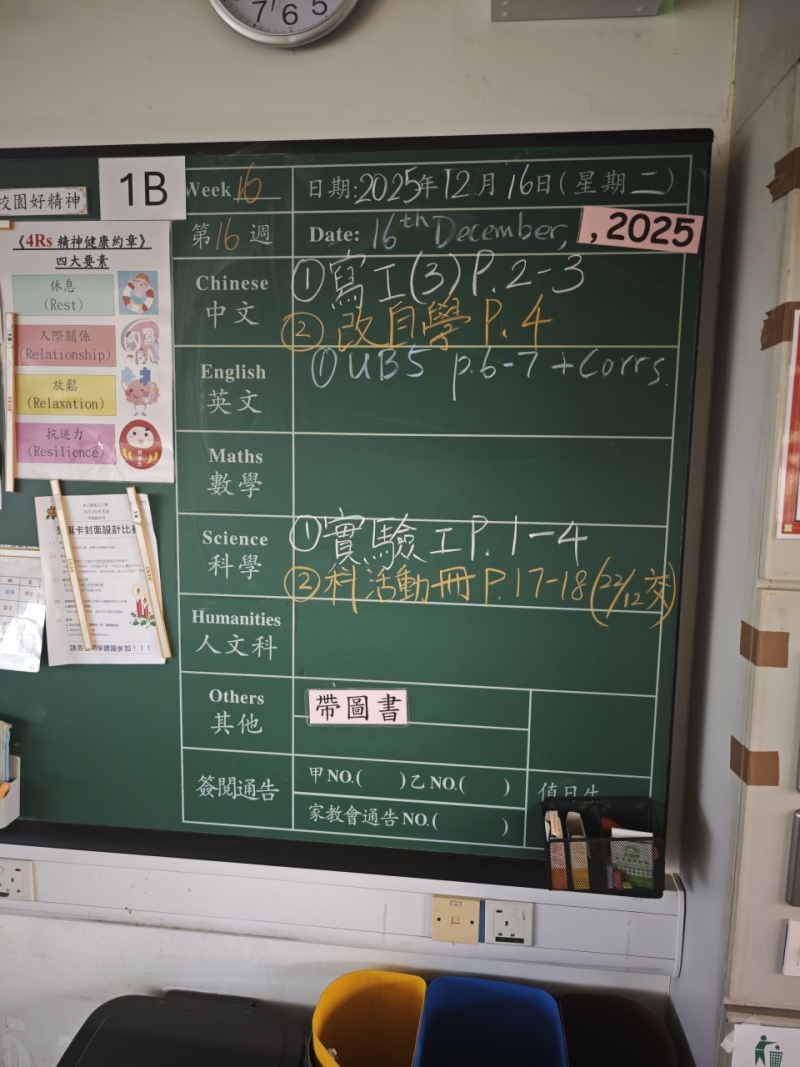 7 6 5
校園好精神
1B
Week 16
日期:2025年12月16日(星期二)
第16週
Date: 16th December, , 2025
《4Rs 精神健康約章》
四大要素
休息
(Rest)
人際關係
(Relationship)
放鬆
(Relaxation)
抗逆力
(Resilience)
Chinese
中文
①寫工(3)P.2-3
②改自學P.4
English
英文
①UB5 p.6-7 + Corrs.
Maths
數學
Science
科學
①實驗工P.1-4
②科活動冊P.17-18(22/12交)
Humanities
人文科
Others
其他
帶圖書
簽閱通告
甲NO.( )乙NO.( )
家教會通告NO.( )
值日生
卡封面設計比賽